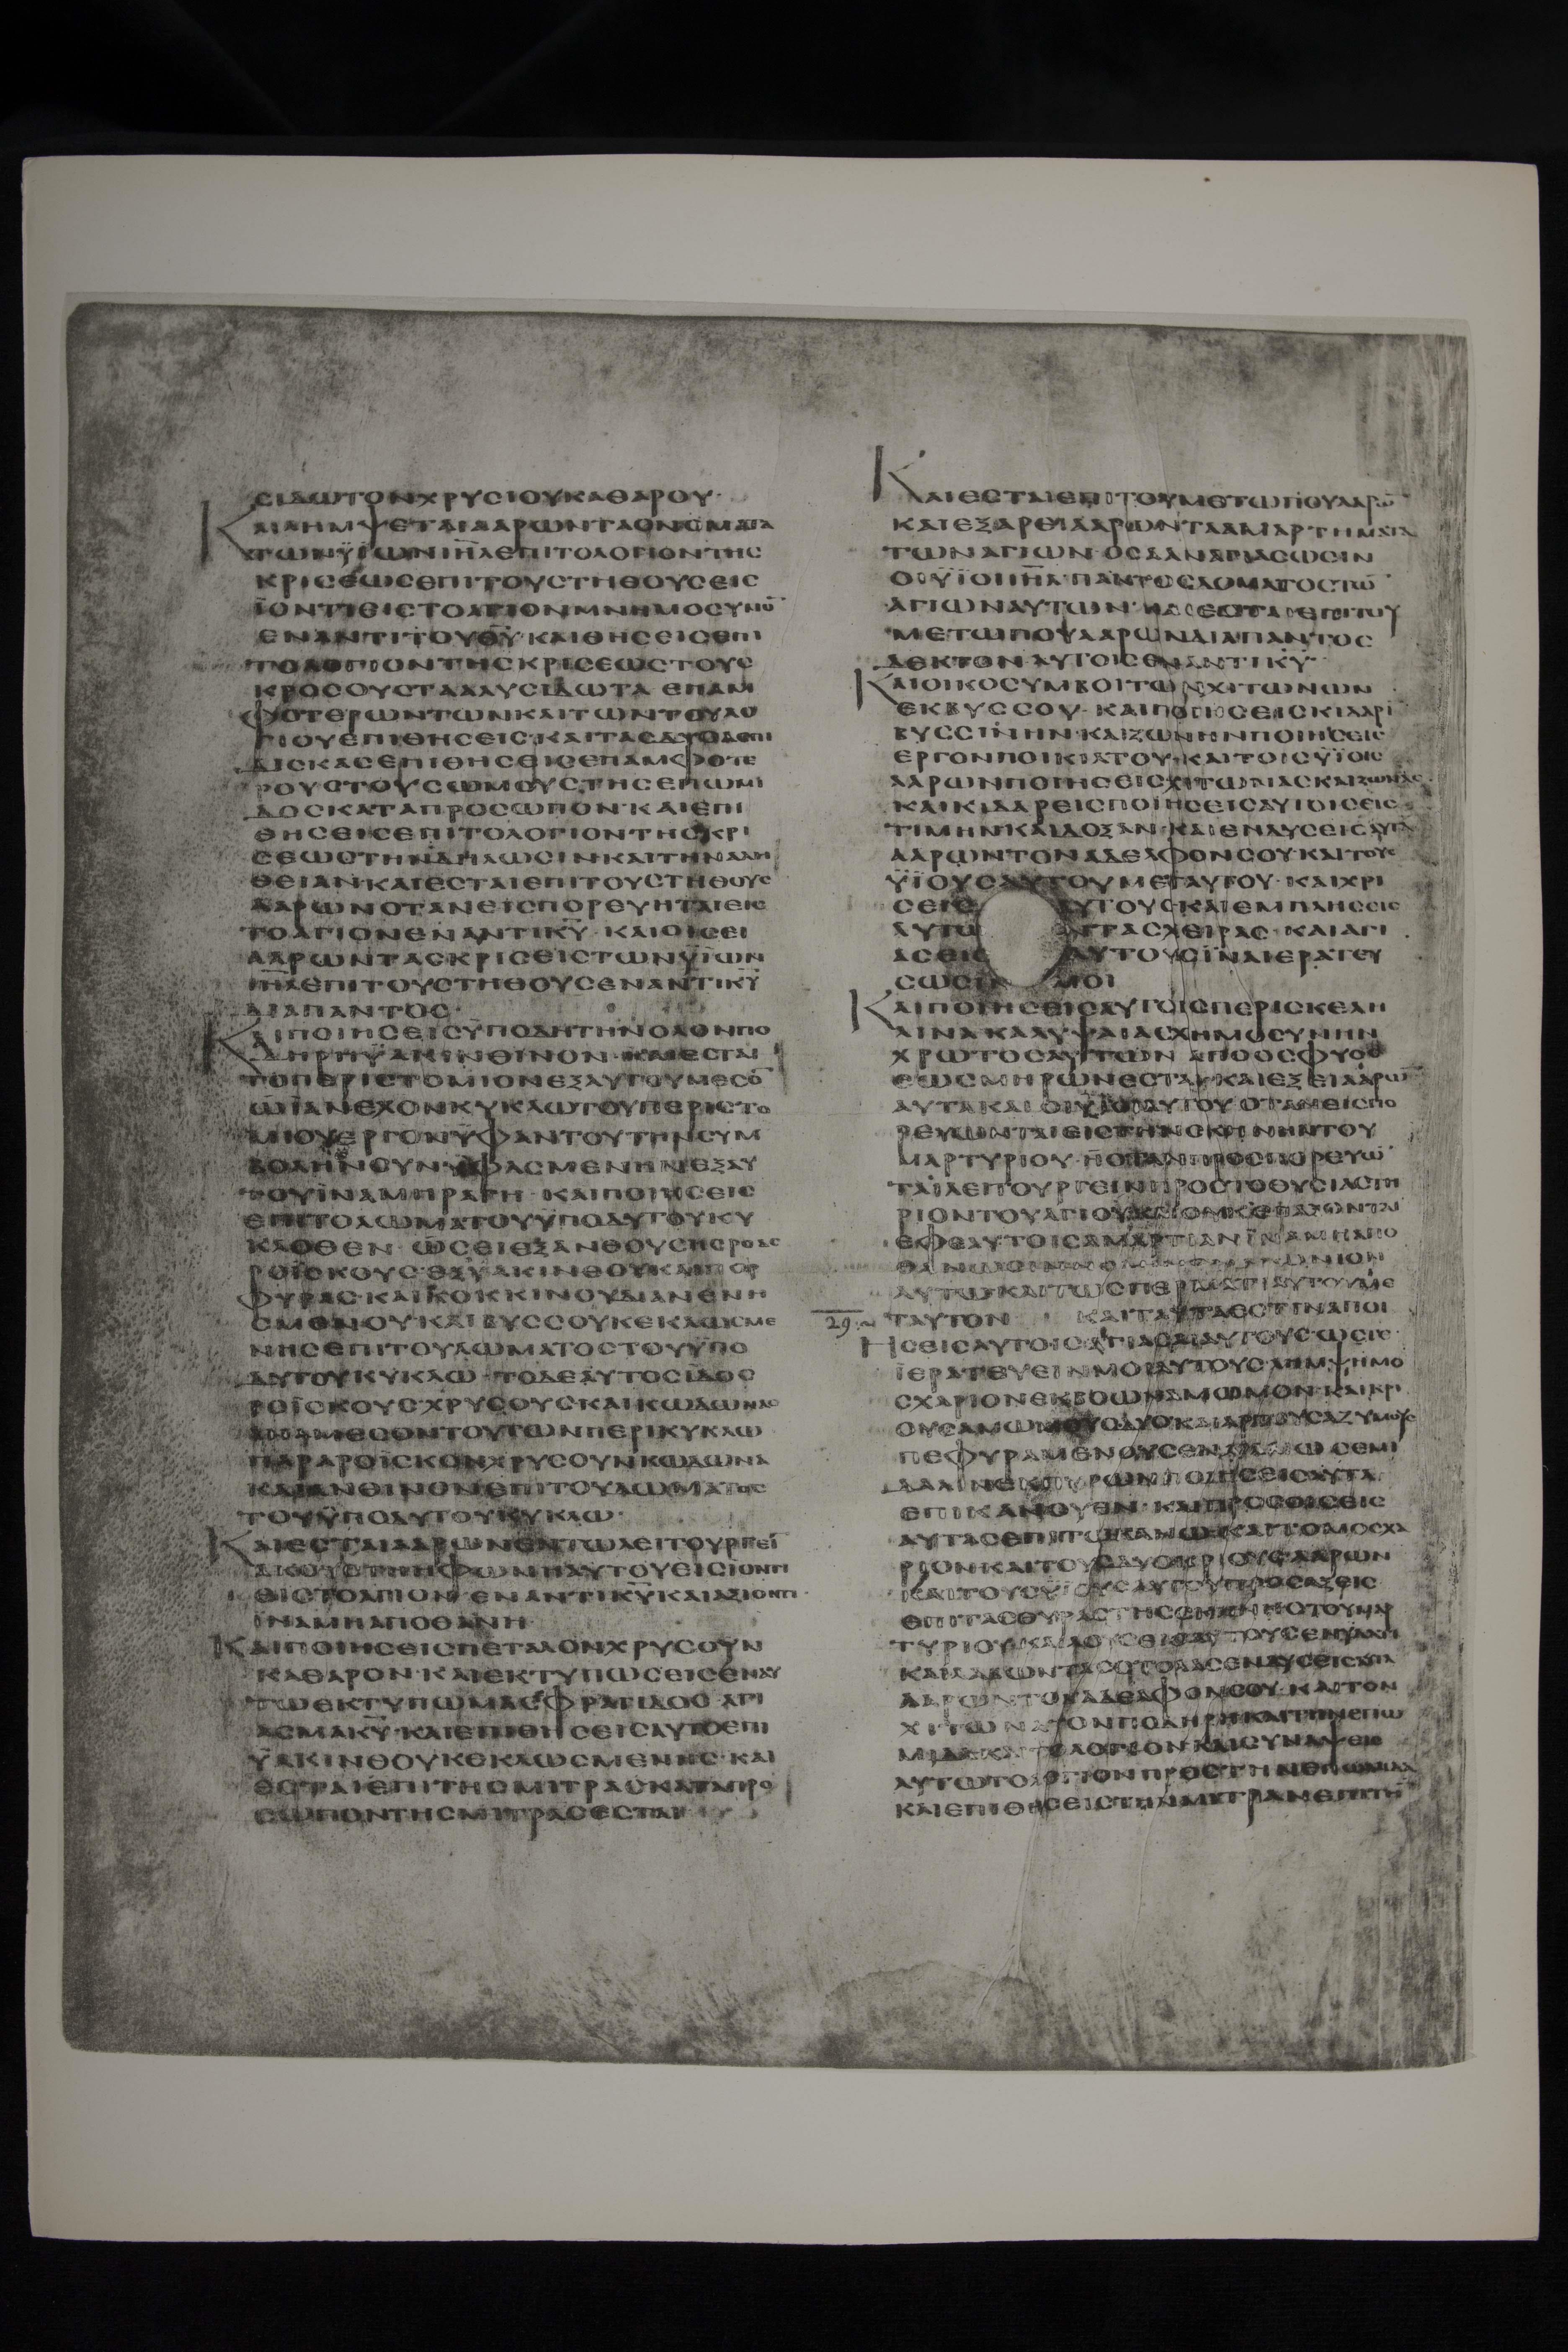 ϹΙΔΩΤΟΝΧΡΥϹΙΟΥΚΑΘΑΡΟΥ·
ΚΑΙΛΗΜΨΕΤΑΙΑΑΡΩΝΤΑΟΝΟΜΑΤΑ
ΤΩΝΫΪΩΝΙΗ̅Λ̅ΕΠΙΤΟΛΟΓΙΟΝΤΗϹ
ΚΡΙϹΕΩϹΕΠΙΤΟΥϹΤΗΘΟΥϹΕΙϹ
ΪΟΝΤΙΕΙϹΤΟΑΓΙΟΝΜΝΗΜΟϹΥΝΟ̅
ΕΝΑΝΤΙΤΟΥΘ̅Υ̅·ΚΑΙΘΗϹΕΙϹΕΠΙ
ΤΟΛΟΓΙΟΝΤΗϹΚΡΙϹΕΩϹΤΟΥϹ
ΚΡΟϹΟΥϹΤΑΑΛΥϹΙΔΩΤΑ ΕΠΑΜ
ΦΟΤΕΡΩΝΤΩΝΚΛΙΤΩΝΤΟΥΛΟ
ΓΙΟΥΕΠΙΘΗϹΕΙϹ·ΚΑΙΤΑϹΔΥΟΑϹΠΙ
ΔΙϹΚΑϹΕΠΙΘΗϹΕΙϹΕΠΑΜΦΟΤΕ
ΡΟΥϹΤΟΥϹΩΜΟΥϹΤΗϹΕΠΩΜΙ
ΔΟϹΚΑΤΑΠΡΟϹΩΠΟΝ·ΚΑΙΕΠΙ
ΘΗϹΕΙϹΕΠΙΤΟΛΟΓΙΟΝΤΗϹΚΡΙ
ϹΕΩϹΤΗΝΔΗΛΩϹΙΝΚΑΙΤΗΝΑΛΗ
ΘΕΙΑΝ·ΚΑΙΕϹΤΑΙΕΠΙΤΟΥϹΤΗΘΟΥϹ
ΑΑΡΩΝΟΤΑΝΕΙϹΠΟΡΕΥΗΤΑΙΕΙϹ
ΤΟΑΓΙΟΝΕΝΑΝΤΙΚ̅Υ̅· ΚΑΙΟΙϹΕΙ
ΑΑΡΩΝΤΑϹΚΡΙϹΕΙϹΤΩΝΫΪΩΝ
ΙΗ̅Λ̅ΕΠΙΤΟΥϹΤΗΘΟΥϹΕΝΑΝΤΙΚ̅Υ̅
ΔΙΑΠΑΝΤΟϹ·
ΚΑΙΠΟΙΗϹΕΙϹΫΠΟΔΗΤΗΝΟΛΟΝΠΟ
ΔΗΡΗΫΑΚΙΝΘΙΝΟΝ·ΚΑΙΕϹΤΑΙ
ΤΟΠΕΡΙϹΤΟΜΙΟΝΕΞΑΥΤΟΥΜΕϹΟ̅
ΩΪΑΝΕΧΟΝΚΥΚΛΩΤΟΥΠΕΡΙϹΤΟ
ΜΙΟΥΕΡΓΟΝΫΦΑΝΤΟΥΤΗΝϹΥΜ
ΒΟΛΗΝϹΥΝΥΦΑϹΜΕΝΗΝΕΞΑΥ
ΤΟΥΪΝΑΜΗΡΑΓΗ·ΚΑΙΠΟΙΗϹΕΙϹ
ΕΠΙΤΟΛΩΜΑΤΟΥΫΠΟΔΥΤΟΥΚΥ
ΚΛΟΘΕΝ·ΩϹΕΙΕΞΑΝΘΟΥϹΗϹΡΟΑϹ
ΡΟΪϹΚΟΥϹ·ΕΞΫΑΚΙΝΘΟΥΚΑΙΠΟΡ
ΦΥΡΑϹ·ΚΑΙΚΟΚΚΙΝΟΥΔΙΑΝΕΝΗ
ϹΜΕΝΟΥΚΑΙΒΥϹϹΟΥΚΕΚΛΩϹΜΕ
ΝΗϹΕΠΙΤΟΥΛΩΜΑΤΟϹΤΟΥΫΠΟ
ΔΥΤΟΥΚΥΚΛΩ·ΤΟΔΕΑΥΤΟΕΙΔΟϹ
ΡΟΪϹΚΟΥϹΧΡΥϹΟΥϹΚΑΙΚΩΔΩΝΑϹ
ΑΝΑΜΕϹΟΝΤΟΥΤΩΝΠΕΡΙΚΥΚΛΩ
ΠΑΡΑΡΟΪϹΚΟΝΧΡΥϹΟΥΝΚΩΔΩΝΑ
ΚΑΙΑΝΘΙΝΟΝΕΠΙΤΟΥΛΩΜΑΤΟϹ
ΤΟΥΫΠΟΔΥΤΟΥΚΥΚΛΩ·
ΚΑΙΕϹΤΑΙΑΑΡΩΝΕΝΤΩΛΕΙΤΟΥΡΓΕΙ̅
ΑΚΟΥϹΤΗΗΦΩΝΗΑΥΤΟΥΕΙϹΙΟΝΤΙ
ΕΙϹΤΟΑΓΙΟΝ·ΕΝΑΝΤΙΚ̅Υ̅ΚΑΙΕΞΙΟΝΤΙ·
ΪΝΑΜΗΑΠΟΘΑΝΗ·
ΚΑΙΠΟΙΗϹΕΙϹΠΕΤΑΛΟΝΧΡΥϹΟΥΝ
ΚΑΘΑΡΟΝ·ΚΑΙΕΚΤΥΠΩϹΕΙϹΕΝΑΥ
ΤΩΕΚΤΥΠΩΜΑϹΦΡΑΓΙΔΟϹ ΑΓΙ
ΑϹΜΑΚ̅Υ̅·ΚΑΙΕΠΙΘΗϹΕΙϹΑΥΤΟΕΠΙ
ΫΑΚΙΝΘΟΥΚΕΚΛΩϹΜΕΝΗϹ·ΚΑΙ
ΕϹΤΑΙΕΠΙΤΗϹΜΙΤΡΑϹΚΑΤΑΠΡΟ
ϹΩΠΟΝΤΗϹΜΙΤΡΑϹΕϹΤΑΙ
ΚΑΙΕϹΤΑΙΕΠΙΤΟΥΜΕΤΩΠΟΥΑΑΡΩ̅
ΚΑΙΕΞΑΡΕΙΑΑΡΩΝΤΑΑΜΑΡΤΗΜΑΤΑ
ΤΩΝΑΓΙΩΝ·ΟϹΑΑΝΑΓΙΑϹΩϹΙΝ
ΟΙΫΪΟΙΙΗ̅Λ̅·ΠΑΝΤΟϹΔΟΜΑΤΟϹΤΩ̅
ΑΓΙΩΝΑΥΤΩΝ·ΚΑΙΕϹΤΑΙΕΠΙΤΟΥ
ΜΕΤΩΠΟΥΑΑΡΩΝΔΙΑΠΑΝΤΟϹ
ΔΕΚΤΟΝΑΥΤΟΙϹΕΝΑΝΤΙΚ̅Υ̅·
ΚΑΙΟΙΚΟϹΥΜΒΟΙΤΩΝΧΙΤΩΝΩΝ
ΕΚΒΥϹϹΟΥ·ΚΑΙΠΟΙΗϹΕΙϹΚΙΔΑΡΙ̅
ΒΥϹϹΙΝΗΝ·ΚΑΙΖΩΝΗΝΠΟΙΗϹΕΙϹ
ΕΡΓΟΝΠΟΙΚΙΛΤΟΥ·ΚΑΙΤΟΙϹΫΪΟΙϹ
ΑΑΡΩΝΠΟΙΗϹΕΙϹΧΙΤΩΝΑϹΚΑΙΖΩΝΑϹ
ΚΑΙΚΙΔΑΡΕΙϹΠΟΙΗϹΕΙϹΑΥΤΟΙϹΕΙϹ
ΤΙΜΗΝΚΑΙΔΟΞΑΝ·ΚΑΙΕΝΔΥϹΕΙϹΑΥΤΑ
ΑΑΡΩΝΤΟΝΑΔΕΛΦΟΝϹΟΥΚΑΙΤΟΥϹ
ΫΪΟΥϹΑΥΤΟΥΜΕΤΑΥΤΟΥ·ΚΑΙΧΡΙ
ϹΕΙϹ ΑΥΤΟΥϹΚΑΙΕΜΠΛΗϹΕΙϹ
ΑΥΤΩ ΤΑϹΧΕΙΡΑϹ·ΚΑΙΑΓΙ
ΑϹΕΙϹ ΑΥΤΟΥϹΪΝΑΙΕΡΑΤΕΥ
ϹΩϹΙΝ ΜΟΙ
ΚΑΙΠΟΙΗϹΕΙϹΑΥΤΟΙϹΠΕΡΙϹΚΕΛΗ
ΛΙΝΑΚΑΛΥΨΑΙΑϹΧΗΜΟϹΥΝΗΝ
ΧΡΩΤΟϹΑΥΤΩΝ ΑΠΟΟϹΦΥΟϹ
ΕΩϹΜΗΡΩΝΕϹΤΑΙ·ΚΑΙΕΞΕΙΑΑΡΩ̅
ΑΥΤΑΚΑΙΟΙΫΪΟΙΑΥΤΟΥΟΤΑΝΕΙϹΠΟ
ΡΕΥΩΝΤΑΙΕΙϹΤΗΝϹΚΗΝΗΝΤΟΥ
ΜΑΡΤΥΡΙΟΥ·ΗΟΤΑΝΠΡΟϹΠΟΡΕΥΩ̅
ΤΑΙΛΕΙΤΟΥΡΓΕΙΝΠΡΟϹΤΟΘΥϹΙΑϹΤΗ
ΡΙΟΝΤΟΥΑΓΙΟΥΚΑΙΟΥΚΕΠΑΞΟΝΤΑΙ
ΕΦΕΑΥΤΟΙϹΑΜΑΡΤΙΑΝΪΝΑΜΗΑΠΟ
ΘΑΝΩϹΙΝ ΩΝΙΟΝ
ΑΥΤΩΚΑΙΤΩϹΠΕΡΜΑΤΙΑΥΤΟΥΜΕ
29. ΤΑΥΤΟΝ ΚΑΙΤΑΥΤΑΕϹΤΙΝΑΠΟΙ
ΗϹΕΙϹΑΥΤΟΙϹΑΓΙΑϹΑΙΑΥΤΟΥϹΩϹΤΕ
ΪΕΡΑΤΕΥΕΙΝΜΟΙΑΥΤΟΥϹΛΗΜΨΗΜΟ
ϹΧΑΡΙΟΝΕΚΒΟΩΝΑΜΩΜΟΝ·ΚΑΙΚΡΙ
ΟΥϹΑΜΩΜΟΥϹΔΥΟΚΑΙΑΡΤΟΥϹΑΖΥΜΟΥϹ
ΠΕΦΥΡΑΜΕΝΟΥϹΕΝΕΛΑΙΩϹΕΜΙ
ΔΑΛΙΝΕΚΠΥΡΩΝΠΟΙΗϹΕΙϹΑΥΤΑ
ΕΠΙΚΑΝΟΥΝΕΝ·ΚΑΙΠΡΟϹΟΙϹΕΙϹ
ΑΥΤΑϹΕΠΙΤΩΚΑΝΩΚΑΙΤΟΜΟϹΧΑ
ΡΙΟΝΚΑΙΤΟΥϹΔΥΟΚΡΙΟΥϹΑΑΡΩΝ
ΚΑΙΤΟΥϹΫΪΟΥϹΑΥΤΟΥΠΡΟϹΑΞΕΙϹ
ΕΠΙΤΑϹΘΥΡΑϹΤΗϹϹΚΗΝΗϹΤΟΥΜΑΡ
ΤΥΡΙΟΥ·ΚΑΙΛΟΥϹΕΙϹΑΥΤΟΥϹΕΝΫΔΑΤΙ
ΚΑΙΛΑΒΩΝΤΑϹϹΤΟΛΑϹΕΝΔΥϹΕΙϹ
ΑΑΡΩΝΤΟΝΑΔΕΛΦΟΝϹΟΥ·ΚΑΙΤΟΝ
ΧΙΤΩΝΑΤΟΝΠΟΔΗΡΗΚΑΙΤΗΝΕΠΩ
ΜΙΔΑΚΑΙΤΟΛΟΓΙΟΝ·ΚΑΙϹΥΝΑΨΕΙϹ
ΑΥΤΩΤΟΛΟΓΙΟΝΠΡΟϹΤΗΝΕΠΩΜΙΔΑ
ΚΑΙΕΠΙΘΗϹΕΙϹΤΗΝΜΙΤΡΑΝΕΠΙΤΗ̅